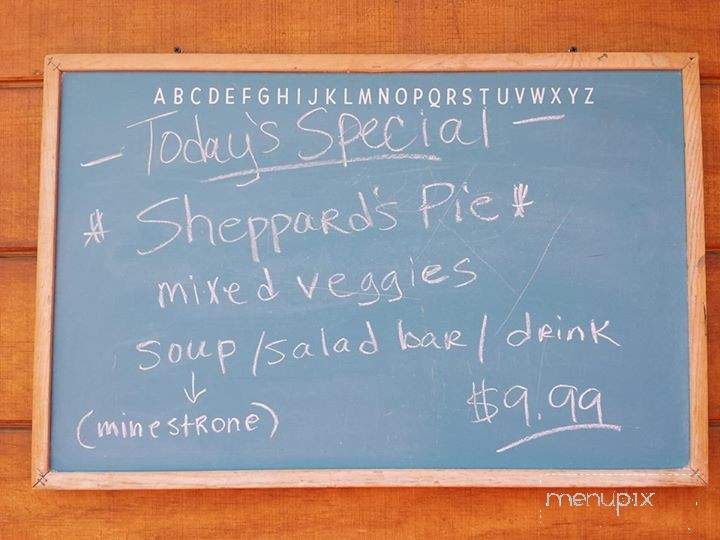 ABCDEFGHIJKLMNOPQRSTUVWXYZ
- Today's Special -
* Sheppard's Pie *
mixed veggies
soup / salad bar / drink
↓
(minestrone) $9.99
menupix